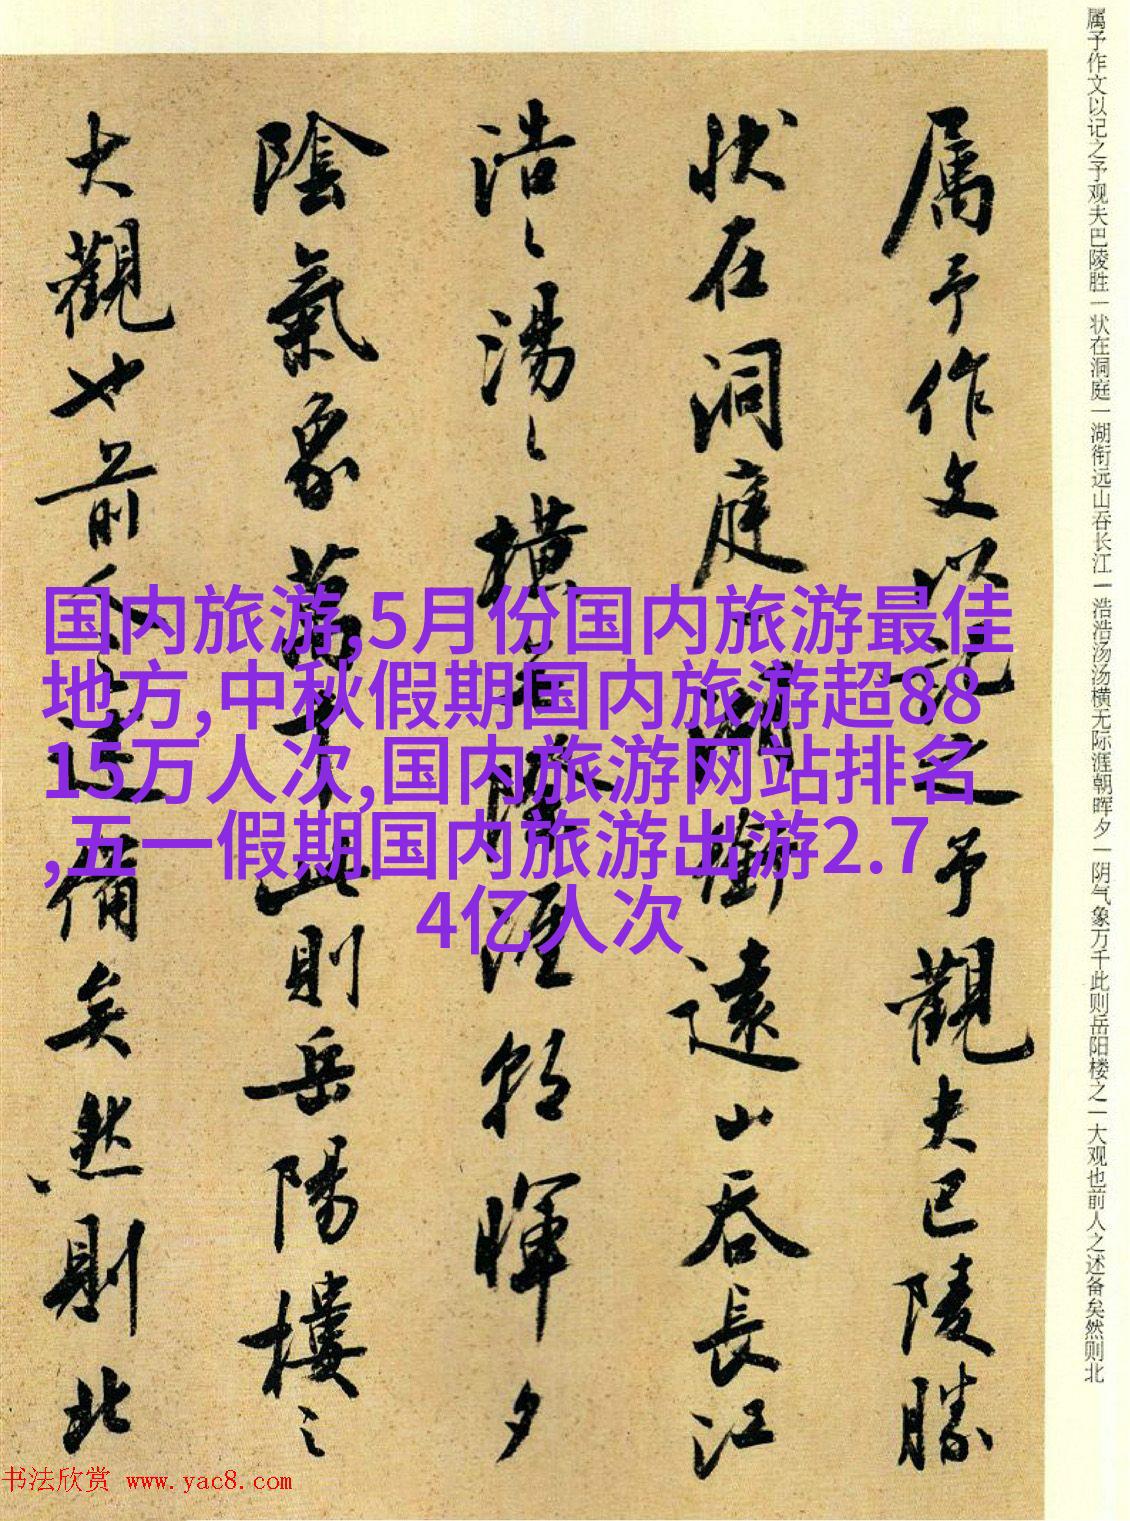 属予作文以记之予观夫巴陵胜一状在洞庭一湖衔远山吞长江一浩浩汤汤横无际涯朝晖夕一阴气象万千此则岳阳楼之一大观也前人之述备矣然则北
属予作文以记之予觀夫巴陵勝
状在洞庭一湖銜遠山吞長江
浩〻湯〻橫无際涯朝暉夕
陰氣象萬千此則岳陽樓之
大觀也前人之述備矣然則北
国内旅游,5月份国内旅游最佳
地方,中秋假期国内旅游超88
15万人次,国内旅游网站排名
,五一假期国内旅游出游2.7
4亿人次
书法欣赏 www.yac8.com